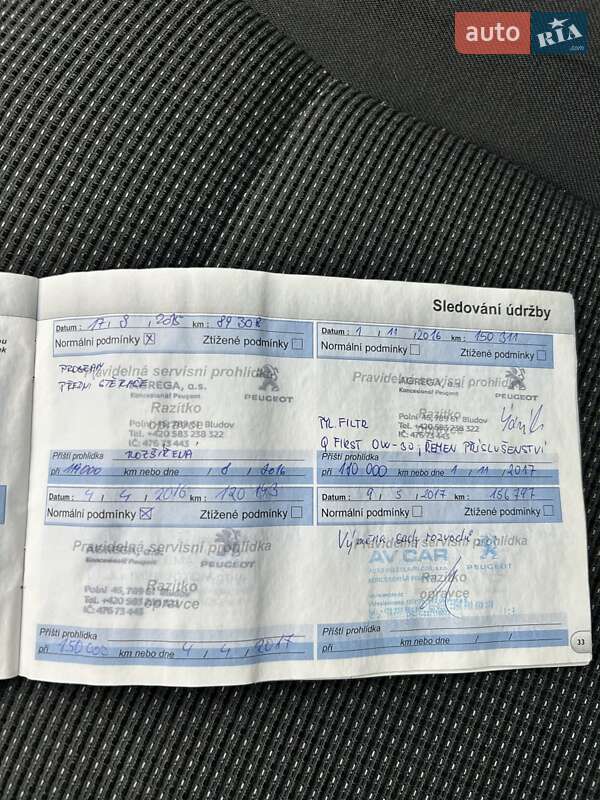 auto RIA .com
Sledování údržby
Datum : 17 / 8 / 2015 km : 89 302
Normální podmínky ☒ Ztížené podmínky ☐
PROGRAM
PŘEDNÍ STĚRAČE
Pravidelná servisní prohlídka
AGREGA, a.s.
Koncesionář Peugeot
PEUGEOT
Razítko
opravce
Polní 45, 789 61 Bludov
Tel. +420 583 238 322
IČ: 476 73 443
ROZŠÍŘENÁ
Příští prohlídka
při km nebo dne / 8 / 2016
Datum : 1 / 11 / 2016 km : 150 311
Normální podmínky ☐ Ztížené podmínky ☐
Pravidelná servisní prohlídka
AGREGA, a.s.
Koncesionář Peugeot
PEUGEOT
Razítko
Polní 45, 789 61 Bludov
Tel. +420 583 238 322
IČ: 476 73 443
FILTR
Q FIRST 0W-30, ŘEMEN PŘÍSLUŠENSTVÍ
Příští prohlídka
při km nebo dne 1 / 11 / 2017
Datum : 4 / 4 / 2016 km : 120 193
Normální podmínky ☒ Ztížené podmínky ☐
Pravidelná servisní prohlídka
AGREGA, a.s.
PEUGEOT
Razítko
opravce
Polní 45, 789 61 Bludov
IČ: 476 73 443
Příští prohlídka
při 150 000 km nebo dne 4 / 4 / 2017
Datum : 9 / 5 / 2017 km : 156 797
Normální podmínky ☐ Ztížené podmínky ☐
Výměna sady rozvodů
Pravidelná servisní prohlídka
AV CAR
PEUGEOT
Razítko
opravce
Příští prohlídka
při km nebo dne / /
33